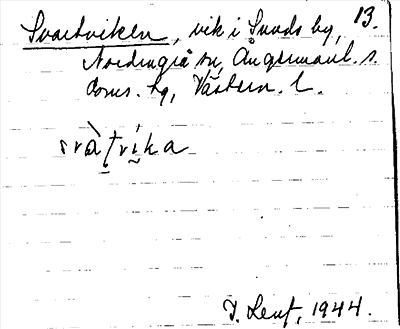 13.
Svartviken, vik i Sunds by,
Nordingrå sn, Ångermanl. s.
doms. tg, Västern. l.
svàtvíka
I. Leuf, 1944.